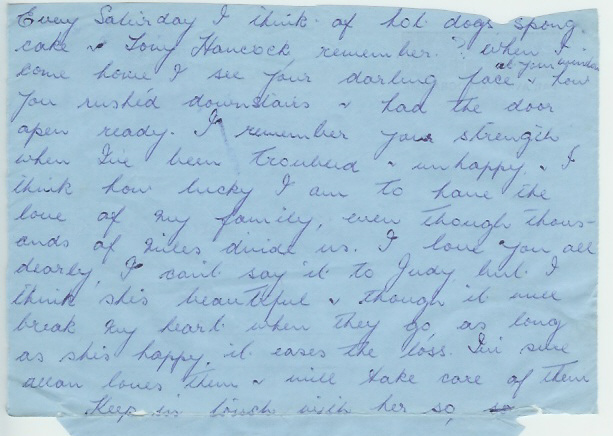 Every Saturday I think of hot dogs spong
cake & Tony Hancock remember? when I
come home I see your darling face at your window & how
you rushed downstairs & had the door
open ready. I remember your strength
when I've been troubled & unhappy & I
think how lucky I am to have the
love of my family, even though thous-
ands of miles divide us. I love you all
dearly I can't say it to Judy but I
think she's beautiful & though it will
break my heart when they go as long
as she's happy, it eases the loss. I'm sure
allan loves them & will take care of them
Keep in touch with her so, so